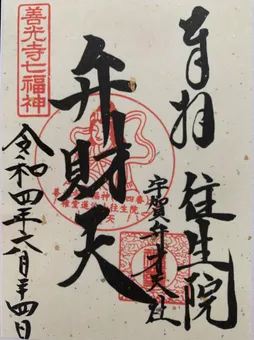 奉拝
往生院
宇賀弁才天社
弁財天
善光寺七福神
令和四年六月廿四日